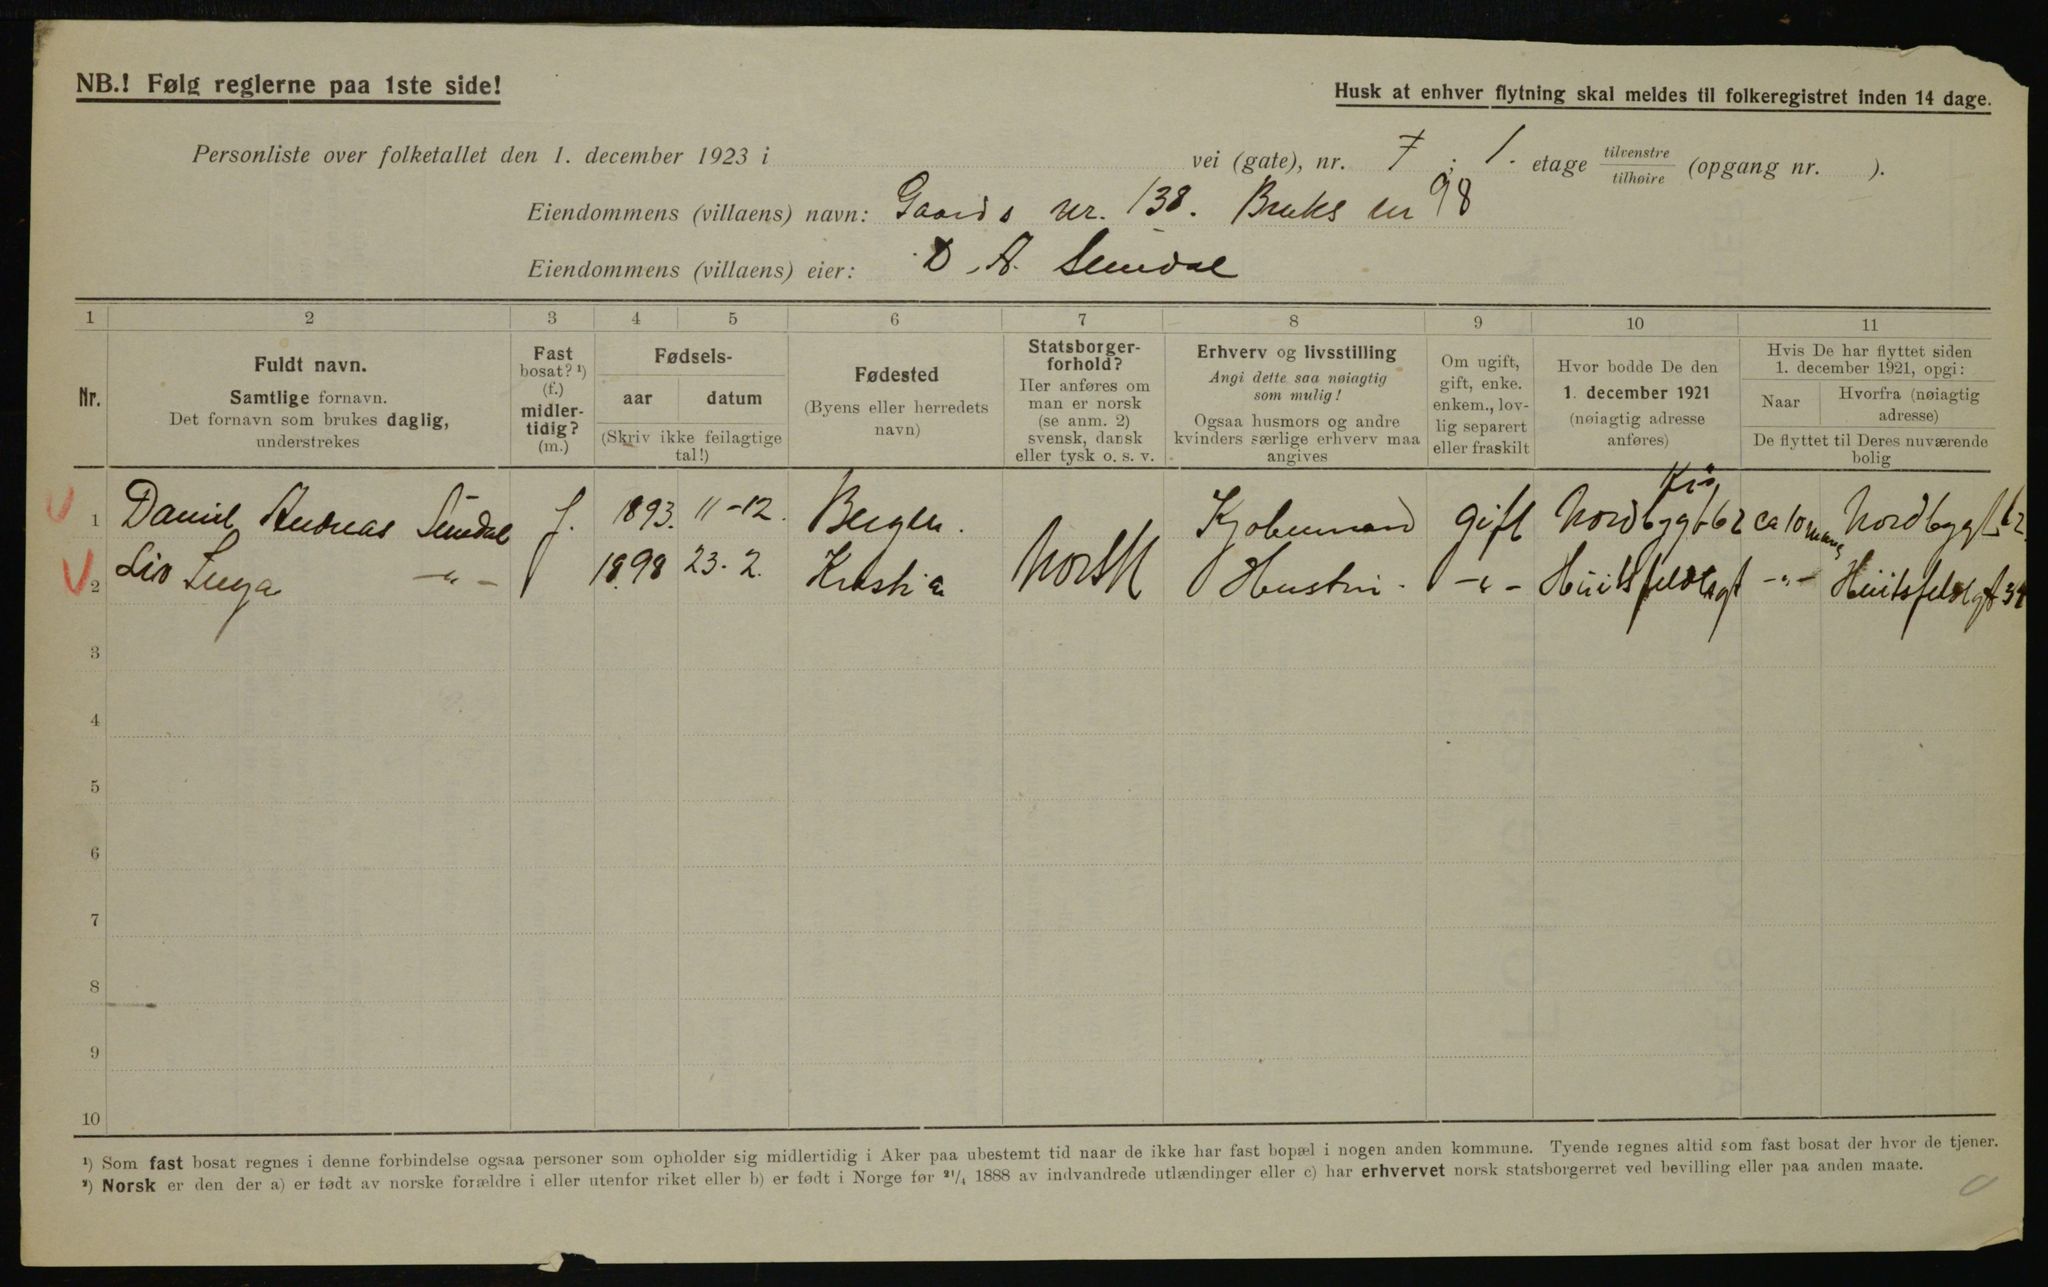 NB.! Følg reglerne paa 1ste side!
Husk at enhver flytning skal meldes til folkeregistret inden 14 dage.
Personliste over folketallet den 1. december 1923 i vei (gate), nr. 7 ; 1. etage tilvenstre tilhøire (opgang nr. ).
Eiendommens (villaens) navn: Gaards nr. 138. Bruks nr 98
Eiendommens (villaens) eier: D. A. Sundal
1 2 3 4 5 6 7 8 9 10 11
Nr.
Fuldt navn.
Samtlige fornavn.
Det fornavn som brukes daglig,
understrekes
Fast
bosat? ¹)
(f.)
midler-
tidig?
(m.)
Fødsels-
aar datum
(Skriv ikke feilagtige
tal!)
Fødested
(Byens eller herredets
navn)
Statsborger-
forhold?
Her anføres om
man er norsk
(se anm. 2)
svensk, dansk
eller tysk o. s. v.
Erhverv og livsstilling
Angi dette saa nøiagtig
som mulig!
Ogsaa husmors og andre
kvinders særlige erhverv maa
angives
Om ugift,
gift, enke.
enkem., lov-
lig separert
eller fraskilt
Hvor bodde De den
1. december 1921
(nøiagtig adresse
anføres)
Hvis De har flyttet siden
1. december 1921, opgi:
Naar
Hvorfra (nøiagtig
adresse)
De flyttet til Deres nuværende
bolig
Kria
1 Daniel Andreas Sundal f. 1893. 11-12. Bergen. Norsk Kjøbmand gift Nordbygt 62 ca 10 mang Nordbygt 62
2 Liv Inga -"- 1898 23. 2. Kristia Hustru. -"- Hüitsfeldtsgt -"- Hüitsfeldtgt 34
3
4
5
6
7
8
9
10
¹) Som fast bosat regnes i denne forbindelse ogsaa personer som opholder sig midlertidig i Aker paa ubestemt tid naar de ikke har fast bopæl i nogen anden kommune. Tyende regnes altid som fast bosat der hvor de tjener.
²) Norsk er den der a) er født av norske forældre i eller utenfor riket eller b) er født i Norge før ²¹/₄ 1888 av indvandrede utlændinger eller c) har erhvervet norsk statsborgerret ved bevilling eller paa anden maate.